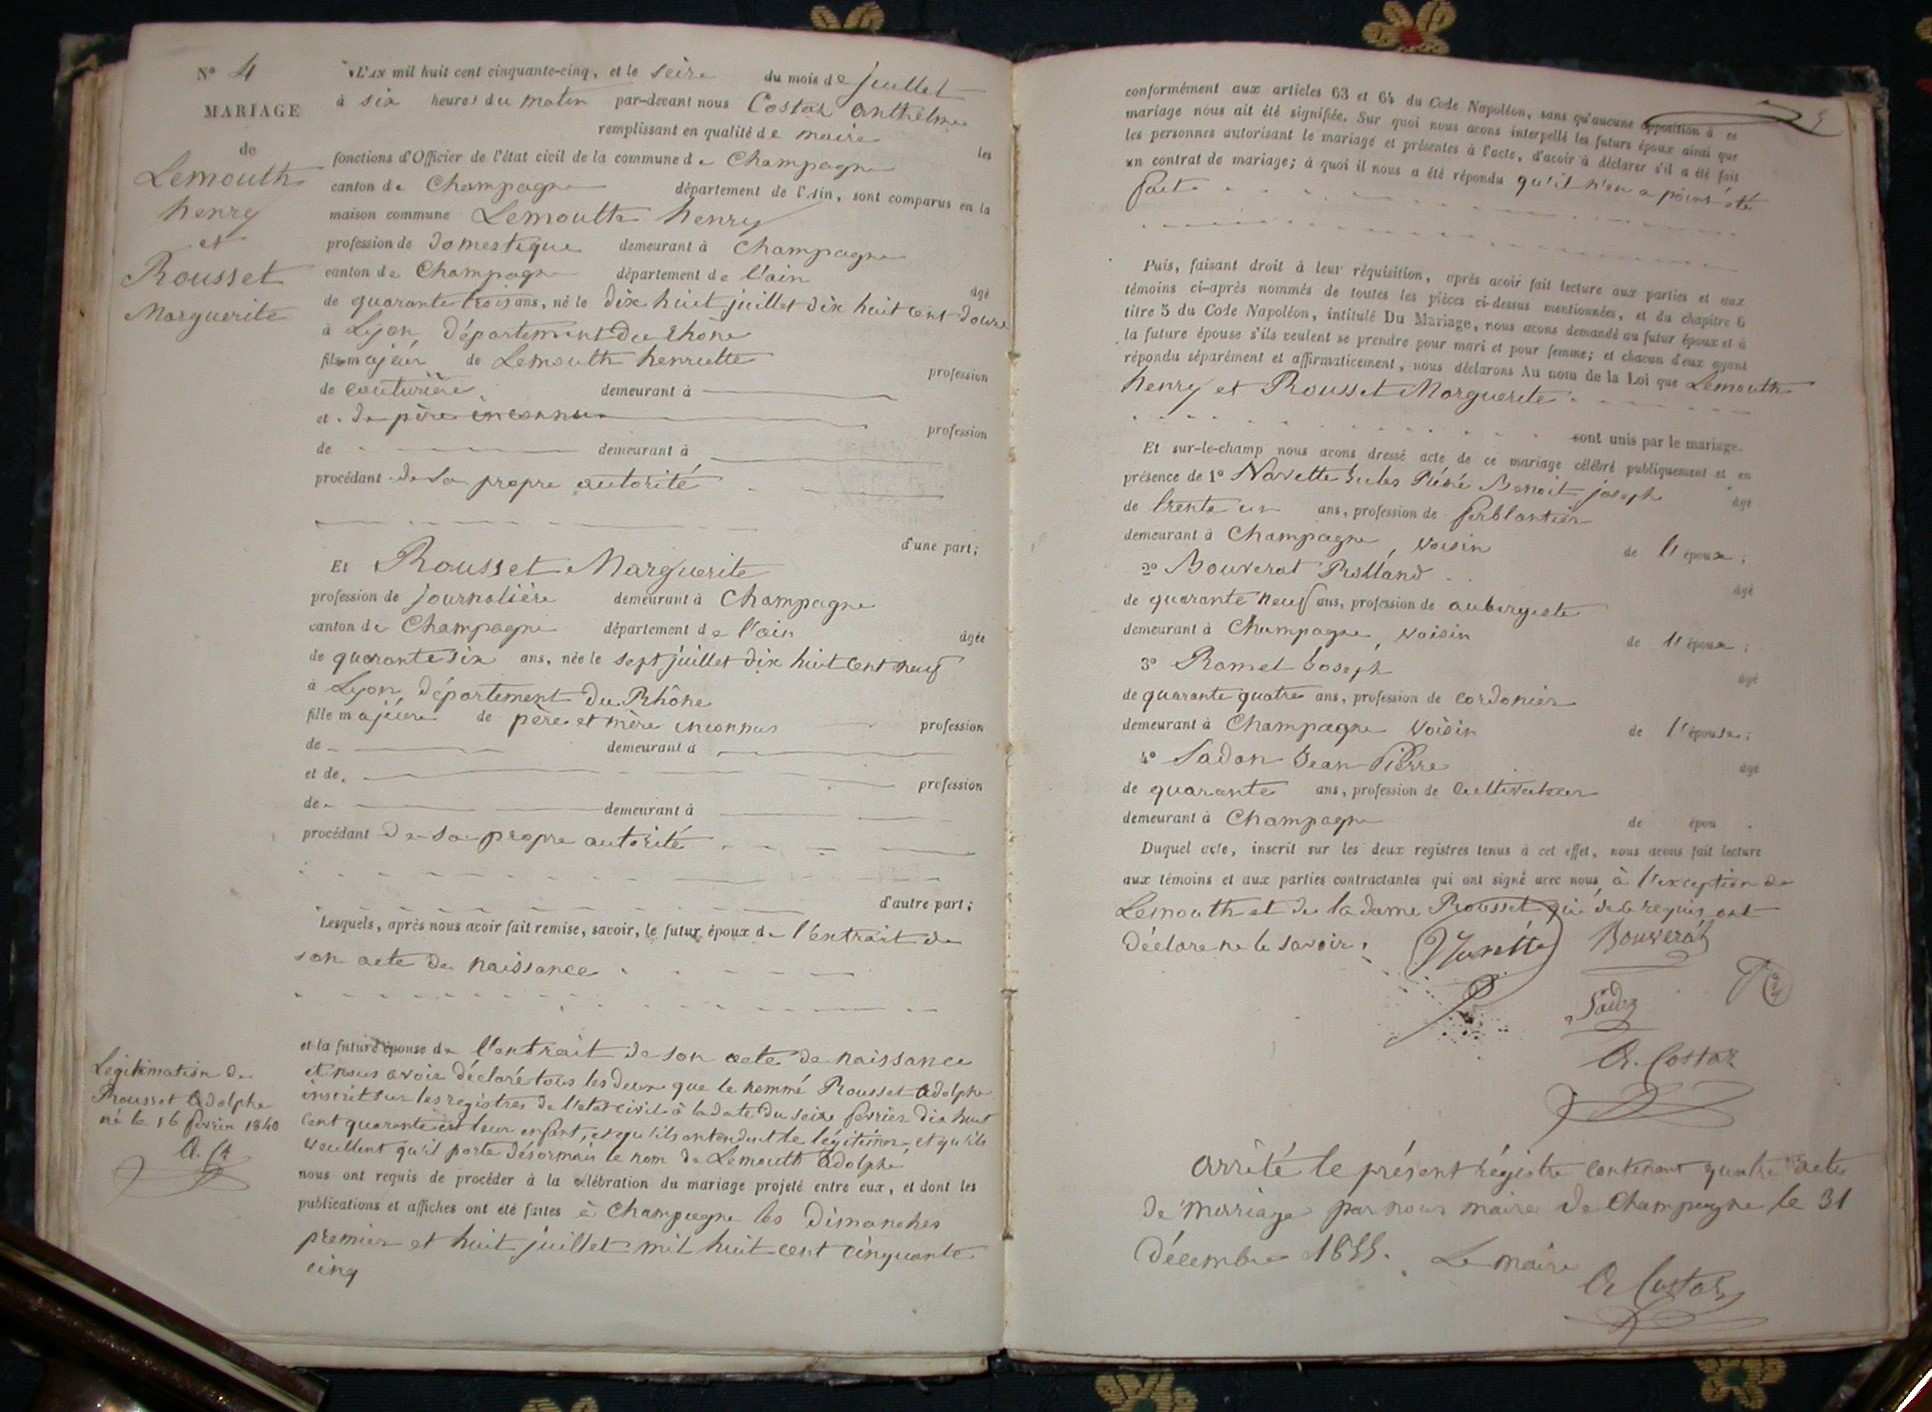 N° 4
MARIAGE
de
Lemouth
henry
et
Rousset
Marguerite
L'AN mil huit cent cinquante-cinq, et le seize du mois de juillet
à six heures du matin par-devant nous Costaz Anthelme
remplissant en qualité de maire les
fonctions d'Officier de l'état civil de la commune de Champagne
canton de Champagne département de l'Ain, sont comparus en la
maison commune Lemouth henry
profession de domestique demeurant à Champagne
canton de Champagne département de l'ain âgé
de quarante trois ans, né le dix huit juillet dix huit cent douze
à Lyon, département du Rhône
fils majeur de Lemouth henriette profession
de couturière demeurant à
et de père inconnu profession
de demeurant à
procédant de sa propre autorité
d'une part;
Et Rousset Marguerite
profession de journalière demeurant à Champagne
canton de Champagne département de l'ain âgée
de quarante six ans, née le sept juillet dix huit cent neuf
à Lyon, département du Rhône
fille majeure de père et mère inconnus profession
de demeurant à
et de profession
de demeurant à
procédant de sa propre autorité
d'autre part;
Lesquels, après nous avoir fait remise, savoir, le futur époux de l'extrait de
son acte de naissance
et la future épouse de l'extrait de son acte de naissance
et nous avoir déclaré tous les deux que le nommé Rousset Adolphe
inscrit sur les registres de l'état civil à la date du seize février dix huit
cent quarante est leur enfant, et qu'ils entendent le légitimer, et qu'ils
veuillent qu'il porte désormais le nom de Lemouth Adolphe,
nous ont requis de procéder à la célébration du mariage projeté entre eux, et dont les
publications et affiches ont été faites à Champagne les dimanches
premier et huit juillet mil huit cent cinquante
cinq
Légitimation de
Rousset Adolphe
né le 16 février 1840
conformément aux articles 63 et 64 du Code Napoléon, sans qu'aucune opposition à ce
mariage nous ait été signifiée. Sur quoi nous avons interpellé les futurs époux ainsi que
les personnes autorisant le mariage et présentes à l'acte, d'avoir à déclarer s'il a été fait
un contrat de mariage; à quoi il nous a été répondu qu'il n'en a point été
fait
Puis, faisant droit à leur réquisition, après avoir fait lecture aux parties et aux
témoins ci-après nommés de toutes les pièces ci-dessus mentionnées, et du chapitre 6
titre 5 du Code Napoléon, intitulé Du Mariage, nous avons demandé au futur époux et à
la future épouse s'ils veulent se prendre pour mari et pour femme; et chacun d'eux ayant
répondu séparément et affirmativement, nous déclarons Au nom de la Loi que Lemouth
henry et Rousset Marguerite
sont unis par le mariage.
Et sur-le-champ nous avons dressé acte de ce mariage célébré publiquement et en
présence de 1° Navette Jules Réné Benoit joseph âgé
de trente un ans, profession de ferblantier
demeurant à Champagne, voisin de l'époux;
2° Bouverat Rolland âgé
de quarante neuf ans, profession de aubergiste
demeurant à Champagne, voisin de l'époux;
3° Ramel Joseph âgé
de quarante quatre ans, profession de cordonier
demeurant à Champagne voisin de l'épouse;
4° Sadon Jean Pierre âgé
de quarante ans, profession de cultivateur
demeurant à Champagne de épou
Duquel acte, inscrit sur les deux registres tenus à cet effet, nous avons fait lecture
aux témoins et aux parties contractantes qui ont signé avec nous, à l'exception de
Lemouth et de la dame Rousset qui de ce requis ont
déclaré ne le savoir.
Navette Bouverat
Sadon
A. Costaz
Arrêté le présent régistre contenant quatre actes
de mariage par nous maire de Champagne le 31
décembre 1855. Le maire
A. Costaz